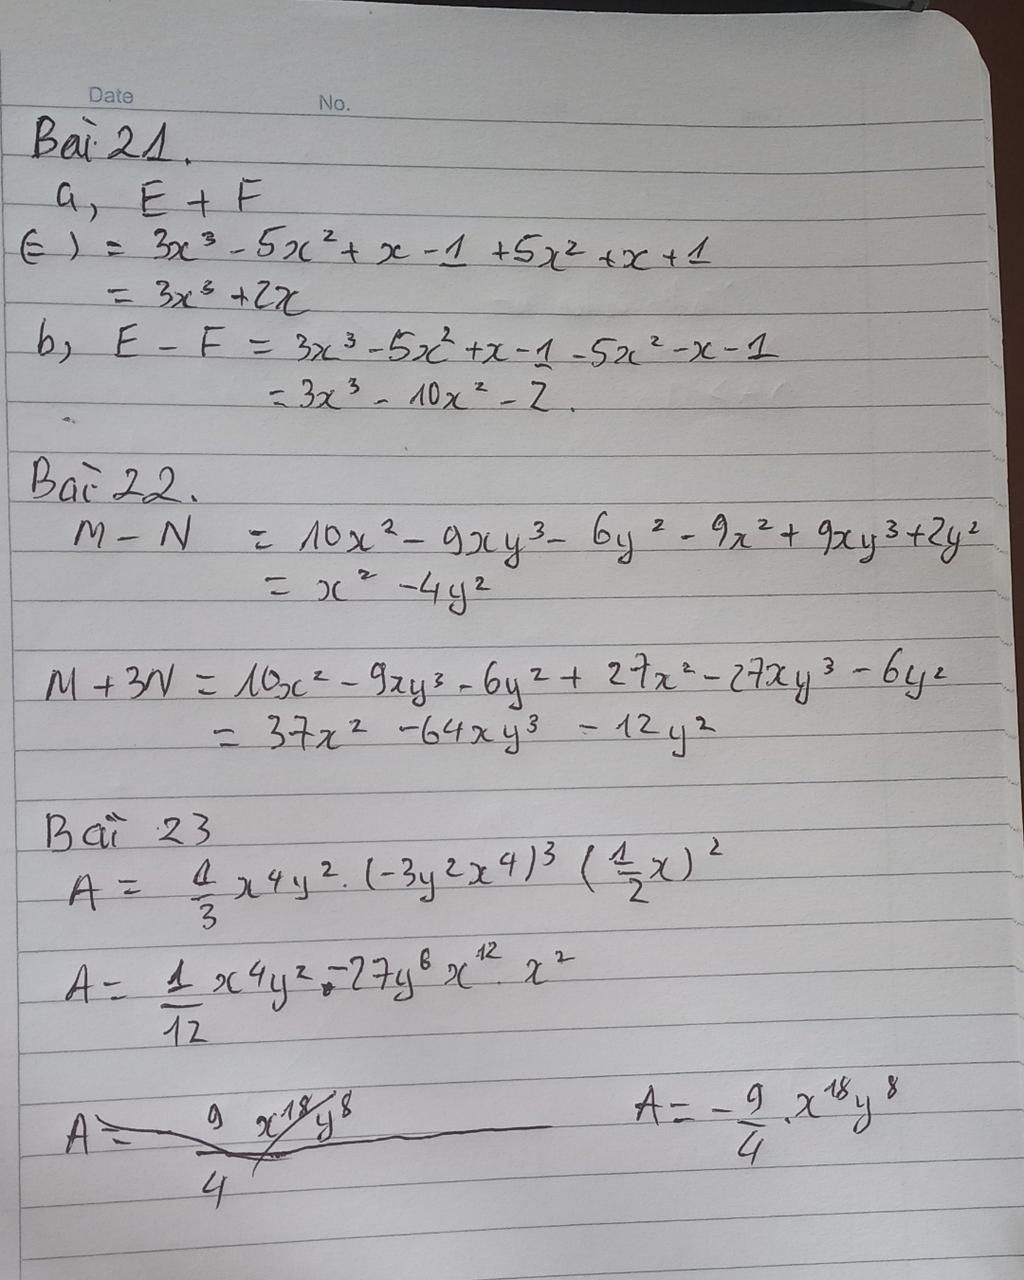 Date No.
Bài 21.
a, E + F
(=) = 3x³ - 5x² + x - 1 + 5x² + x + 1
= 3x³ + 2x
b, E - F = 3x³ - 5x² + x - 1 - 5x² - x - 1
= 3x³ - 10x² - 2.
Bài 22.
M - N = 10x² - 9xy³ - 6y² - 9x² + 9xy³ + 2y²
= x² - 4y²
M + 3N = 10x² - 9xy³ - 6y² + 27x² - 27xy³ - 6y²
= 37x² - 64xy³ - 12y²
Bài 23
A = 1/3 x⁴y² . (-3y²x⁴)³ (1/2 x)²
A = 1/12 x⁴y² . -27y⁶ x¹² . x²
A = 9/4 x¹⁸y⁸ A = - 9/4 . x¹⁸y⁸